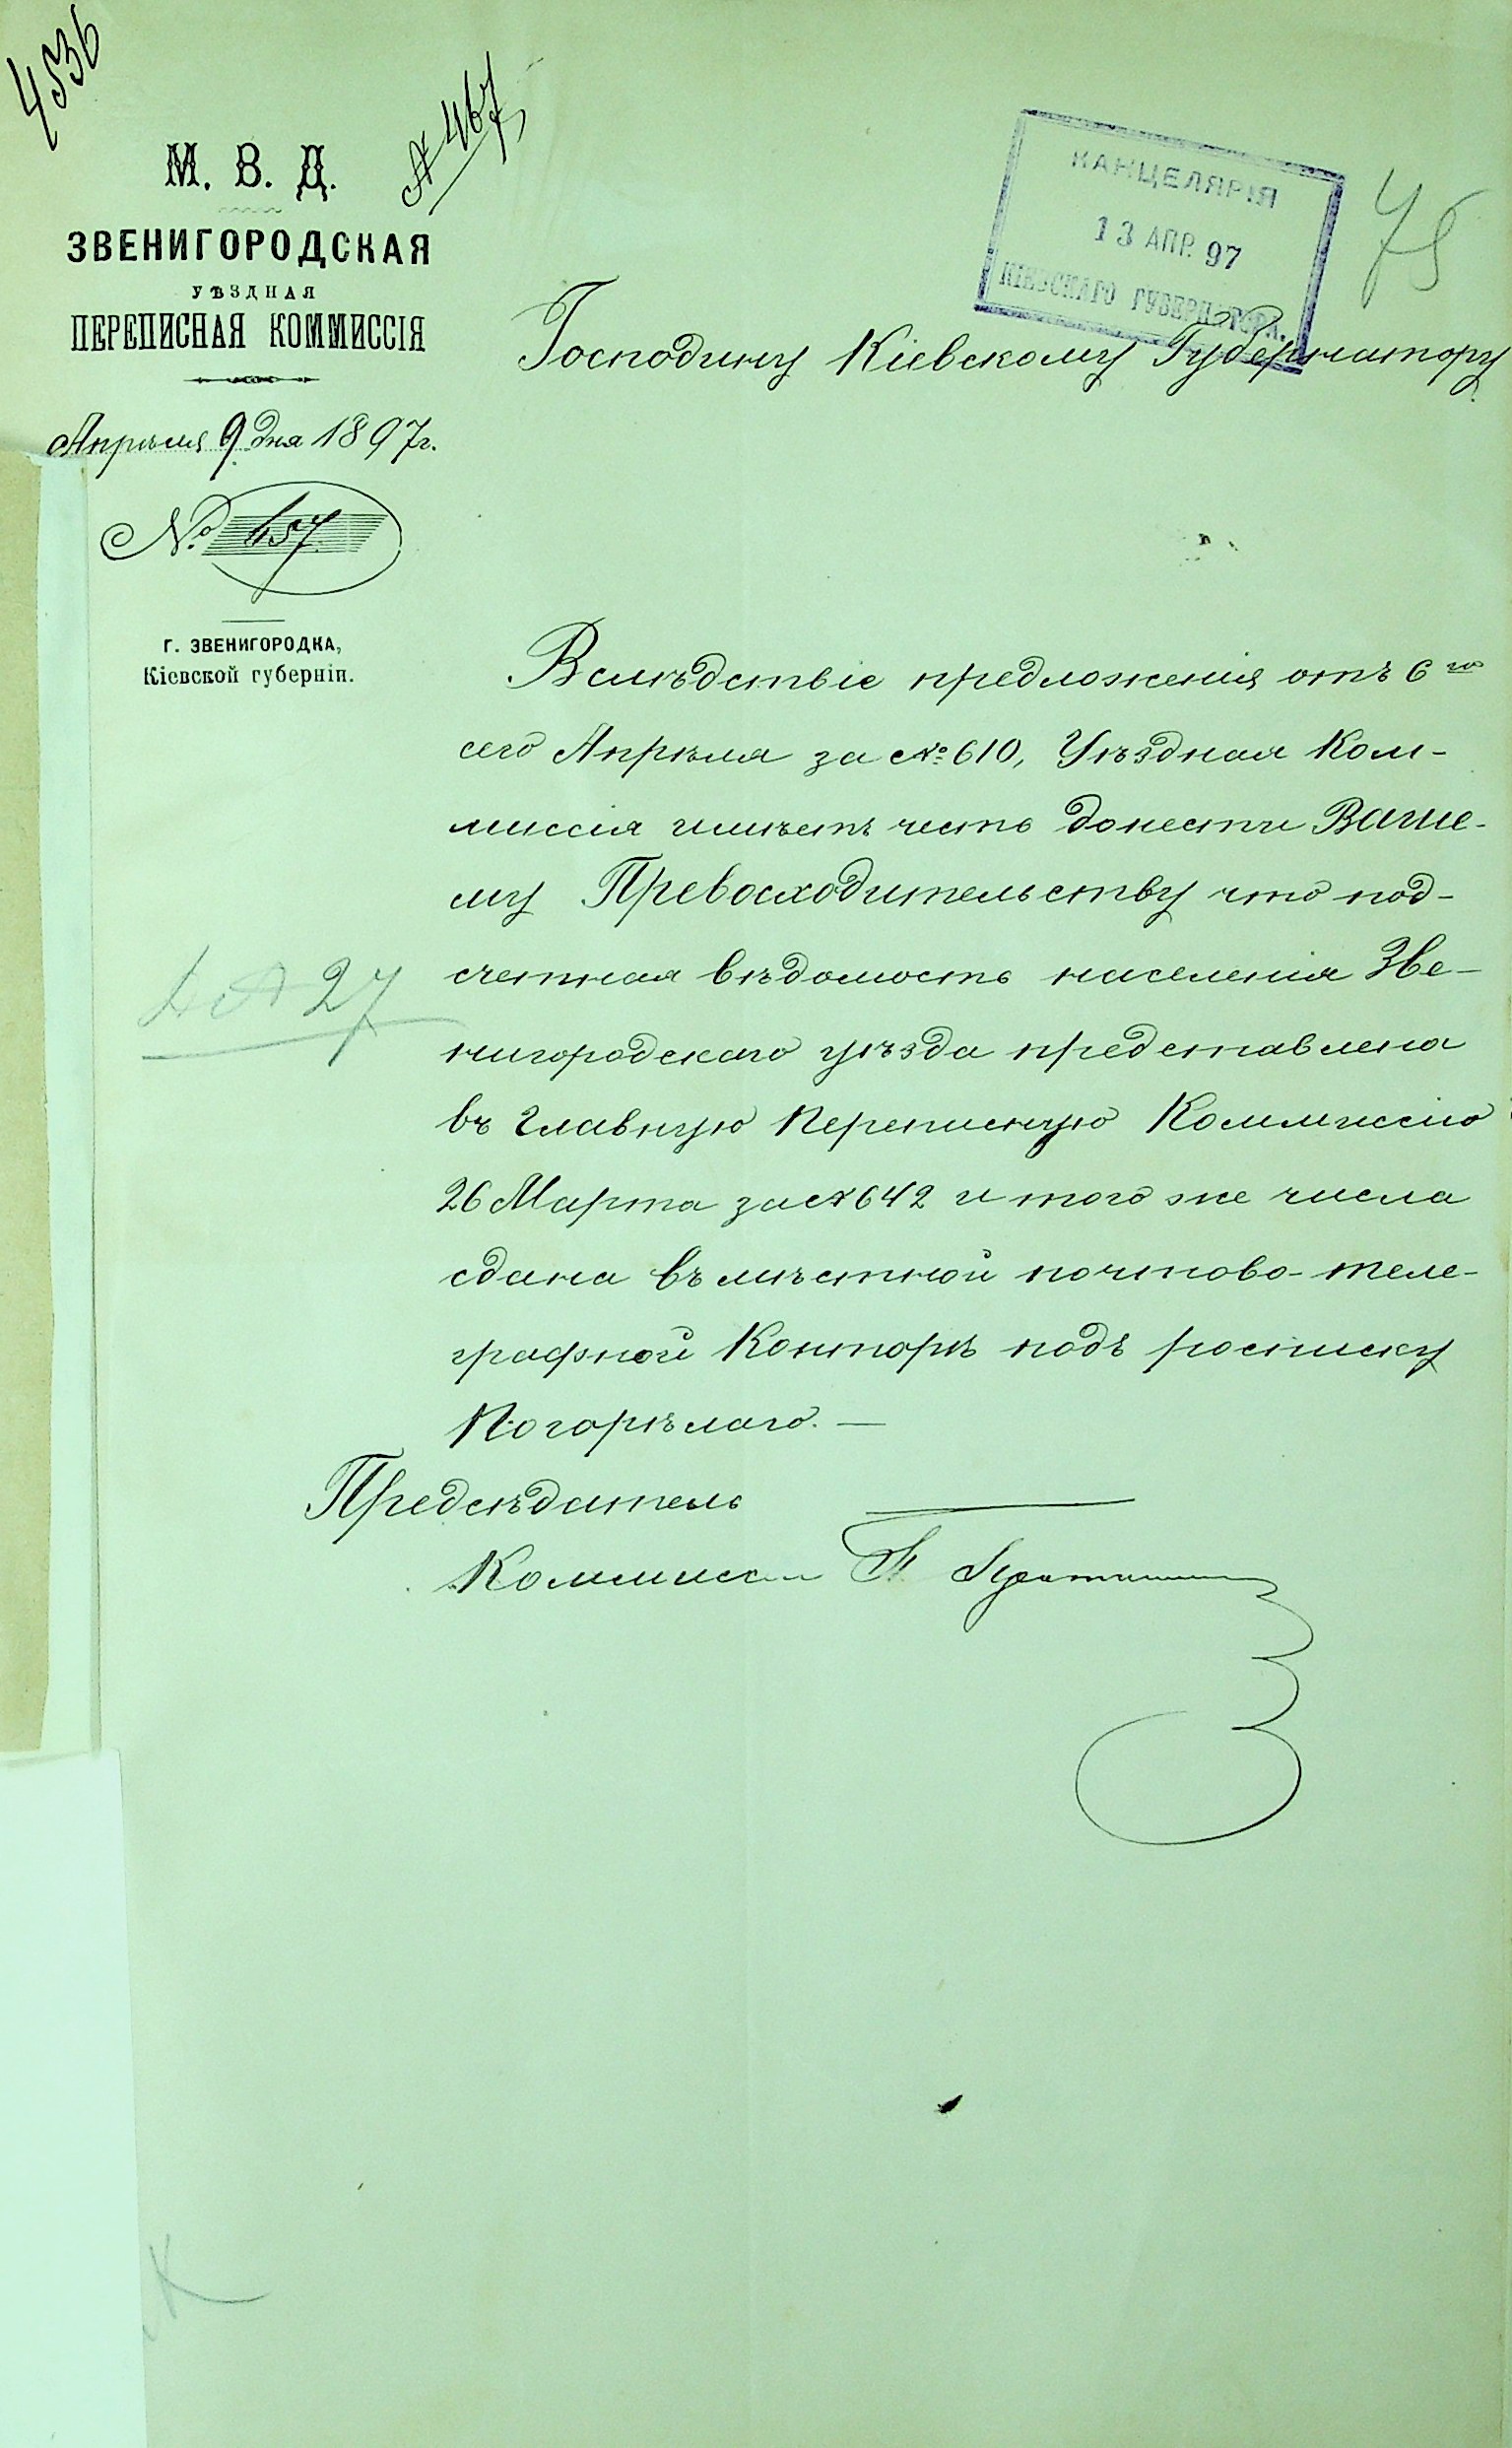 4536
№ 467
М. В. Д.
ЗВЕНИГОРОДСКАЯ
УѢЗДНАЯ
ПЕРЕПИСНАЯ КОММИССІЯ
Апрѣля 9 дня 1897г.
№
Г. ЗВЕНИГОРОДКА,
Кіевской губерніи.
КАНЦЕЛЯРІЯ
13 АПР. 97
КІЕВСКАГО ГУБЕРНАТОРА.
75
Господину Кіевскому Губернатору
Вслѣдствіе предложенія отъ 6го
сего Апрѣля за № 610, Уѣздная Ком-
миссія имѣетъ честь донести Ваше-
му Превосходительству что под-
счетная вѣдомость населенія Зве-
нигородскаго уѣзда представлена
въ Главную Переписную Коммиссію
26 Марта за № 642 и того же числа
сдана въ мѣстной почтово-теле-
графной Конторѣ подъ росписку
Погорѣлаго. —
27
Предсѣдатель
Коммиссіи